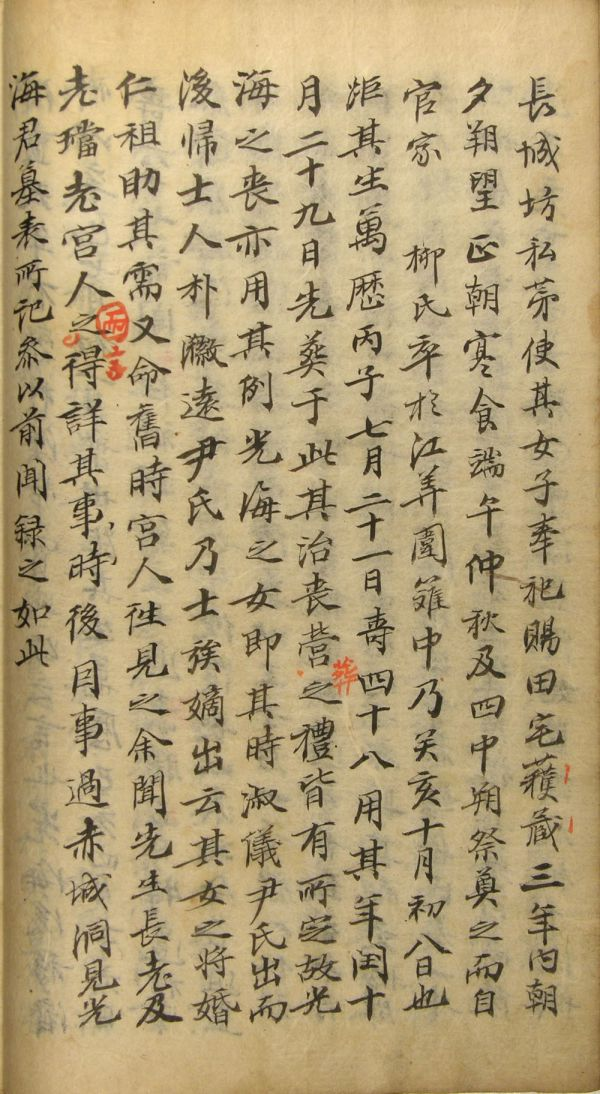 長城坊私茅使其女子奉祀賜田宅蔵三年內朝
夕朔望正朝寒食端午仲秋及四中朔祭奠之而自
官家 柳氏卒於江華圍籬中乃癸亥十月初八日也
距其生萬歷丙子七月二十一日壽四十八用其年閏十
月二十九日先葬于此其治喪營葬之禮皆有所定故光
海之喪亦用其例光海之女即其時淑儀尹氏出而
後歸士人朴澂遠尹氏乃士族嫡出云其女之將婚
仁祖助其需又命舊時宮人往見之余聞先生長老及
老璫老宮人兩言之得詳其事時後因事過赤城洞見光
海君墓表所記參以前聞録之如此